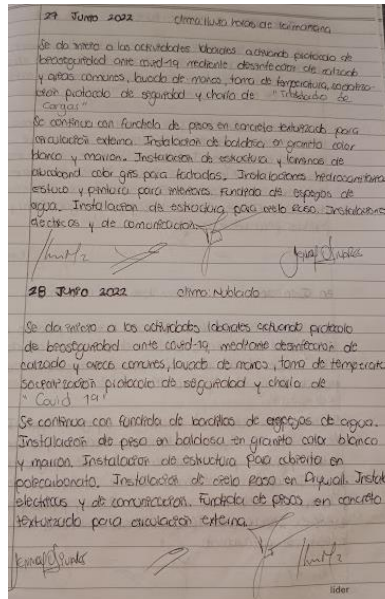 27 Junio 2022 clima lluvia horas de la mañana
Se da inicio a las actividades laborales activando protocolo de
bioseguridad ante covid-19 mediante desinfección de calzado
y areas comunes, lavado de manos, toma de temperatura, socializa-
ción protocolo de seguridad y charla de "Trasladado de
Cargas"
Se continua con fundida de pisos en concreto texturizado para
circulación externa. Instalacion de baldosa en granito color
blanco y marron. Instalacion de estructura y laminas de
alucobond color gris para fachadas. Instalaciones hidrosanitarias
estuco y pintura para interiores. Fundida de espejos de
agua. Instalacion de estructura para cielo raso. Instalaciones
electricas y de comunicacion.
28 Junio 2022 clima Nublado
Se da inicio a las actividades laborales activando protocolo
de bioseguridad ante covid-19, mediante desinfeccion de
calzado y areas comunes, lavado de manos, toma de temperatura
socializacion protocolo de seguridad y charla de
"Covid 19"
Se continua con fundida de bordillos de espejos de agua.
Instalacion de piso en baldosa en granito color blanco
y marron. Instalacion de estructura para cubierta en
policarbonato. Instalacion de cielo raso en Drywall. Instal
electricas y de comunicacion. Fundida de pisos en concreto
texturizado para circulacion externa.
lider